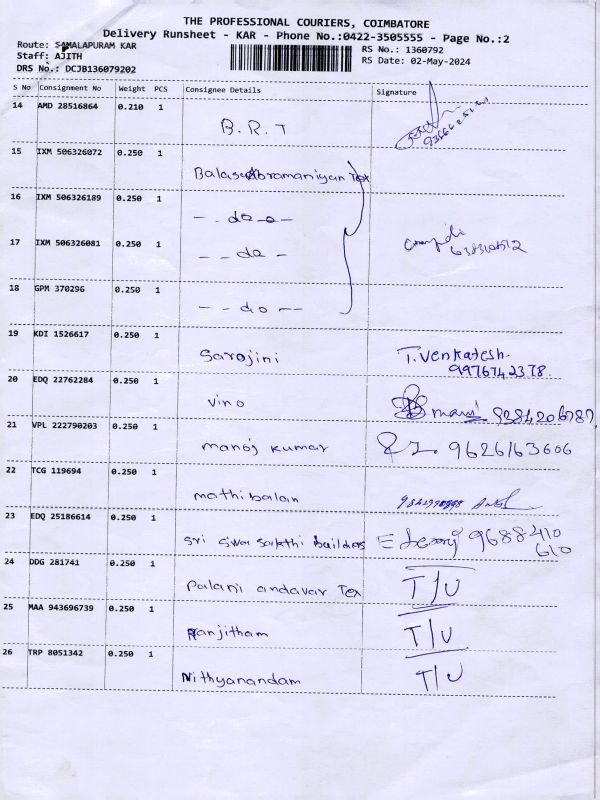 THE PROFESSIONAL COURIERS, COIMBATORE
Delivery Runsheet - KAR - Phone No.:0422-3505555 - Page No.:2
Route: SAMALAPURAM KAR
RS No.: 1360792
Staff: AJITH
RS Date: 02-May-2024
DRS No.: DCJB136079202
S No Consignment No Weight PCS Consignee Details Signature
14 AMD 28516864 0.210 1
B.R.T
15 IXM 506326072 0.250 1
Balasubramaniyan Tex
16 IXM 506326189 0.250 1
- . do - -
17 IXM 506326081 0.250 1
- - do -
18 GPM 370296 0.250 1
- - do - -
19 KDI 1526617 0.250 1
Sarojini T. Venkatesh.
9976742378.
20 EDQ 22762284 0.250 1
Vino
21 VPL 222790203 0.250 1
manoj kumar 9626163606
22 TCG 119694 0.250 1
mathibalan
23 EDQ 25186614 0.250 1
Sri Siva Sakthi builders 9688410
610
24 DDG 281741 0.250 1
Palani andavar Tex T/U
25 MAA 943696739 0.250 1
Ranjitham T/U
26 TRP 8051342 0.250 1
Nithyanandam T/U